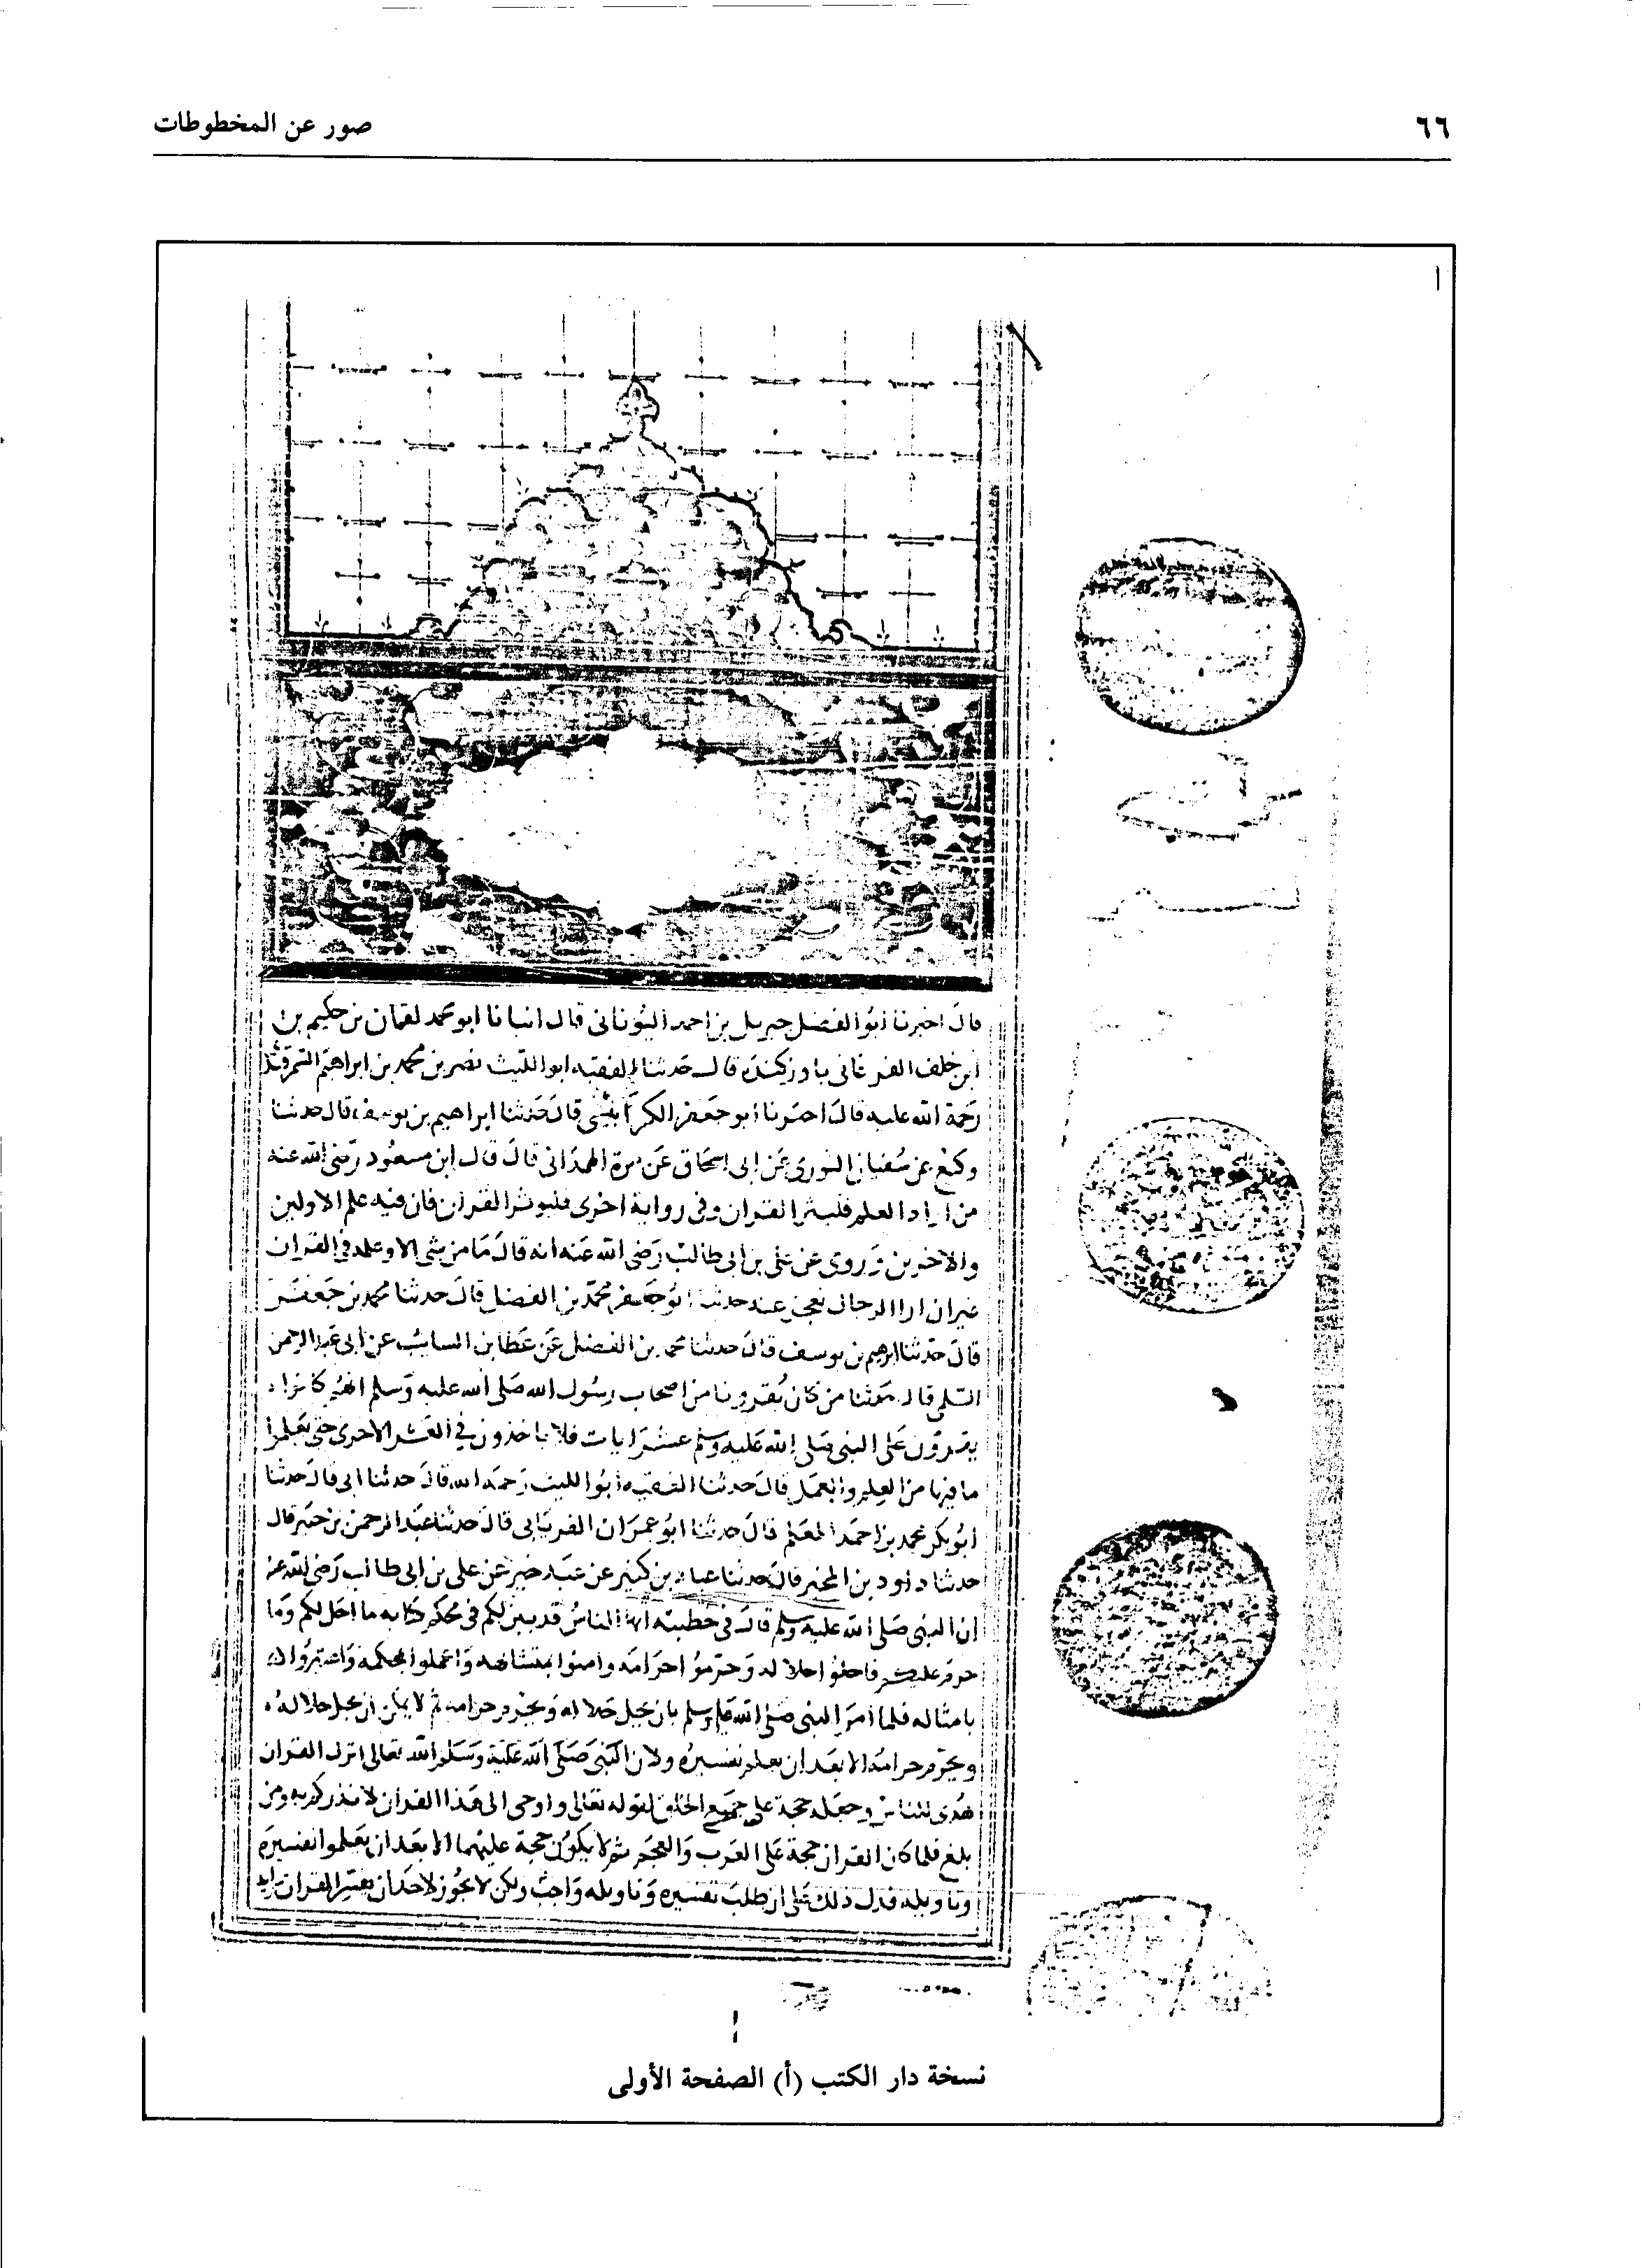 ٦٦
صور عن المخطوطات
قال اخبرنا ابو الفضل جبريل بن احمد اليوناني قال انبانا ابو محمد لقمان بن حكيم بن
ابن خلف الفرغاني باوزكند قال حدثنا الفقيه ابو الليث نصر بن محمد بن ابراهيم السمرقندي
رحمة الله عليه قال اخبرنا ابو جعفر الكرابيسي قال حدثنا ابراهيم بن يوسف قال حدثنا
وكيع عن سفيان الثوري عن ابى اسحاق عن مرة الهمداني قال قال ابن مسعود رضي الله عنه
من اراد العلم فليثر القران وفي رواية اخرى فليوثر القران فان فيه علم الاولين
والاخرين وروى عن علي بن أبي طالب رضي الله عنه انه قال ما من شي الا وعلمه في القران
غير ان ارا الرجال تعجز عنه حدثنا ابو جعفر محمد بن الفضل قال حدثنا محمد بن جعفر
قال حدثنا ابرهيم بن يوسف قال حدثنا محمد بن الفضل عن عطا بن السايب عن أبي عبد الرحمن
السلمي قال حدثنا من كان يقرونا من اصحاب رسول الله صلى الله عليه وسلم انهم كانوا
يقرون على النبي صلى الله عليه وسلم عشر ايات فلا ياخذون في العشر الاخرى حتى يعلموا
ما فيها من العلم والعمل قال حدثنا الفقيه أبو الليث رحمه الله قال حدثنا ابى قال حدثنا
ابو بكر محمد بن احمد المعلم قال حدثنا ابو عمران الفريابى قال حدثنا عبد الرحمن بن جبر قال
حدثنا داود بن المحبر قال حدثنا عباد بن كثير عن عبد خير عن علي بن ابى طالب رضي الله عنه
ان النبي صلى الله عليه وسلم قال في خطبته ايها الناس قد بين لكم في محكم كتابه ما احل لكم وما
حرم عليكم فاحلوا حلاله وحرموا حرامه وامنوا بمتشابهه واعملوا بمحكمه واعتبروا
بامثاله فلما أمر النبي صلى الله عليه وسلم بان يحل حلاله ويحرم حرامه ثم لا يمكن ان يحل حلاله
ويحرم حرامه الا بعد ان يعلم تفسيره ولان النبي صلى الله عليه وسلم الله تعالى انزل القران
هدى للناس وجعله حجة على جميع الخلق لقوله تعالى واوحى الى هذا القران لانذركم به ومن
بلغ فلما كان القران حجة على العرب والعجم ثم لا يكون حجة عليهما الا بعد ان يعلموا تفسيره
وتاويله فدل ذلك على ان طلب تفسيره وتاويله واجب ولكن لا يجوز لاحد ان يفسر القران برايه
نسخة دار الكتب (أ) الصفحة الأولى